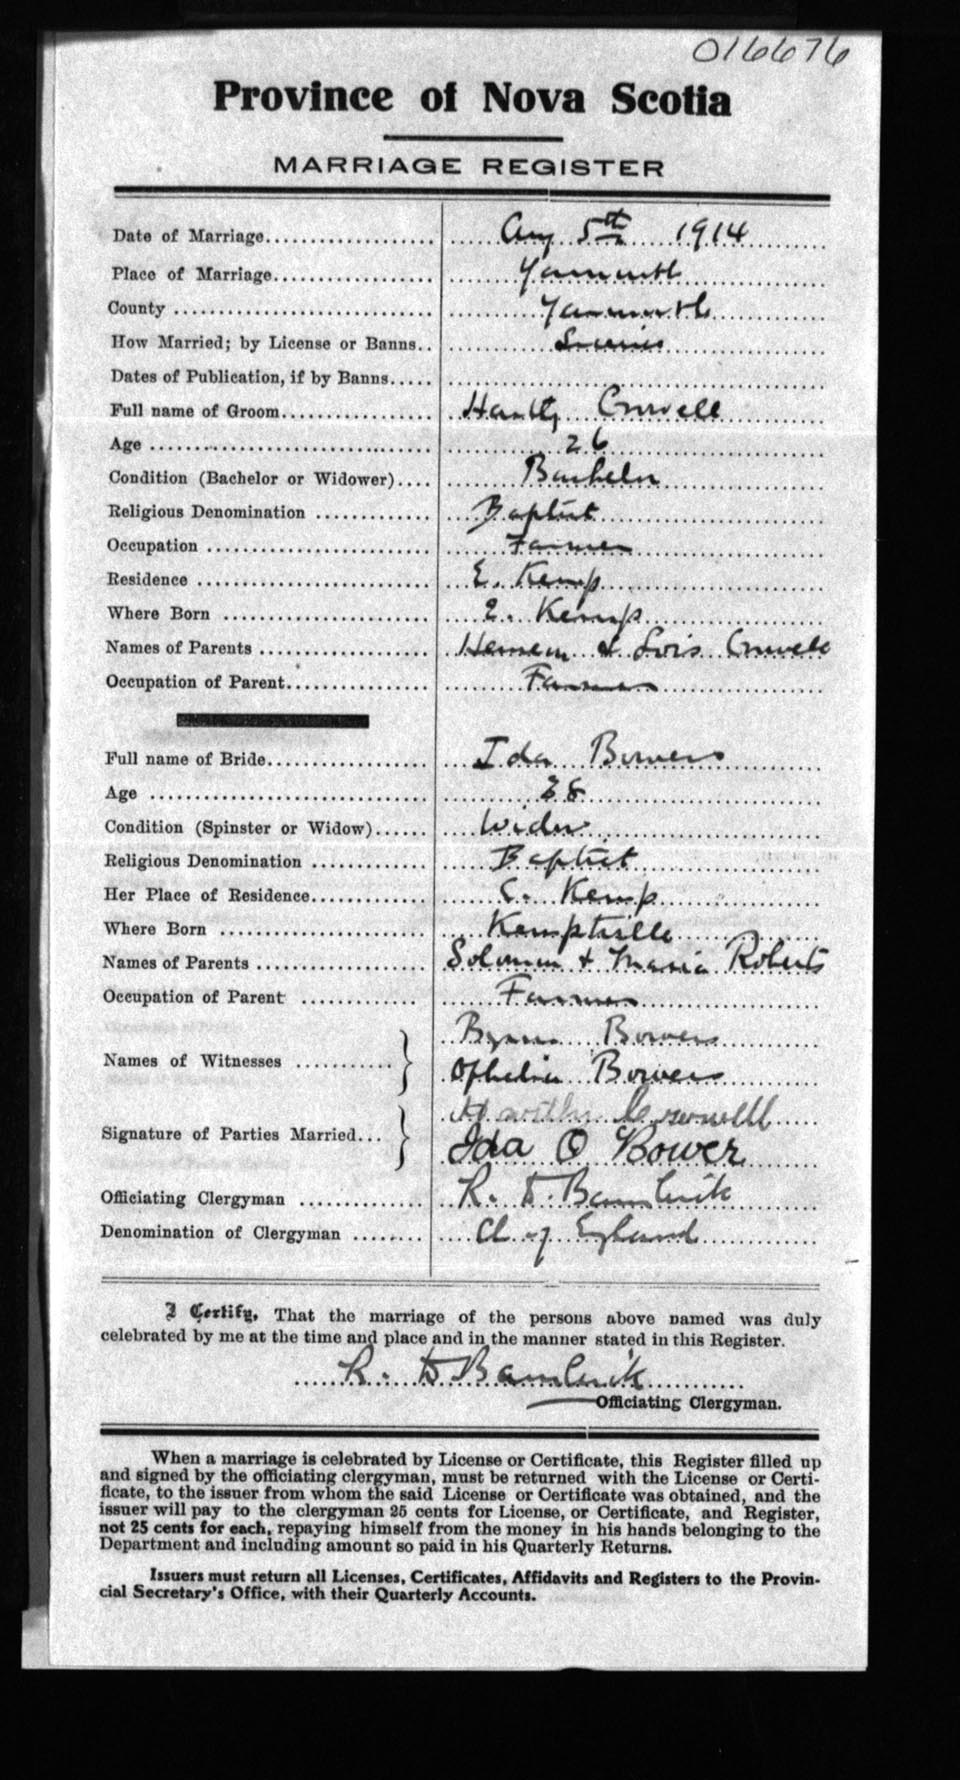 016676
Province of Nova Scotia
MARRIAGE REGISTER
Date of Marriage Aug 5th 1914
Place of Marriage Yarmouth
County Yarmouth
How Married; by License or Banns License
Dates of Publication, if by Banns
Full name of Groom Crowell
Age 26
Condition (Bachelor or Widower) Bachelor
Religious Denomination Baptist
Occupation Farmer
Residence E. Kemp
Where Born E. Kemp
Names of Parents & Lois Crowell
Occupation of Parent Farmer
Full name of Bride Ida Bowers
Age 28
Condition (Spinster or Widow) Widow
Religious Denomination Baptist
Her Place of Residence E. Kemp
Where Born Kemptville
Names of Parents Solomon & Maria Roberts
Occupation of Parent Farmer
Names of Witnesses Bowers
Ophelia Bowers
Signature of Parties Married Crowell
Ida O Bower
Officiating Clergyman R. D. Bambrick
Denomination of Clergyman Ch of England
I Certify, That the marriage of the persons above named was duly
celebrated by me at the time and place and in the manner stated in this Register.
R. D Bambrick
Officiating Clergyman.
When a marriage is celebrated by License or Certificate, this Register filled up
and signed by the officiating clergyman, must be returned with the License or Certi-
ficate, to the issuer from whom the said License or Certificate was obtained, and the
issuer will pay to the clergyman 25 cents for License, or Certificate, and Register,
not 25 cents for each, repaying himself from the money in his hands belonging to the
Department and including amount so paid in his Quarterly Returns.
Issuers must return all Licenses, Certificates, Affidavits and Registers to the Provin-
cial Secretary's Office, with their Quarterly Accounts.